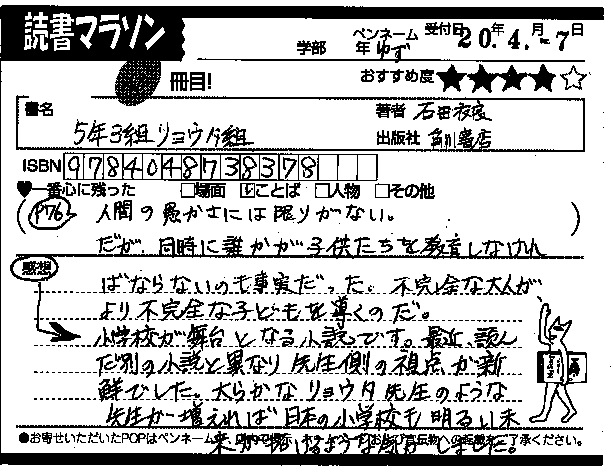 読書マラソン
学部 年 ペンネーム ゆず 受付日 20年4月-7日
冊目!
おすすめ度★★★★☆
書名 5年3組リョウタ組
著者 石田衣良
出版社 角川書店
ISBN 9784048738378
♥一番心に残った □場面 ☑ことば □人物 □その他
(P76) 人間の愚かさには限りがない。
だが、同時に誰かが子供たちを教育しなけれ
ばならないのも事実だった。不完全な大人が
より不完全な子どもを導くのだ。
感想
小学校が舞台となる小説です。最近、読ん
だ別の小説と異なり先生側の視点が新
鮮でした。大らかなリョウタ先生のような
先生が増えれば日本の小学校も明るい未
来が拓けるような気がしました。
●お寄せいただいたPOPはペンネーム
ご了承ください。